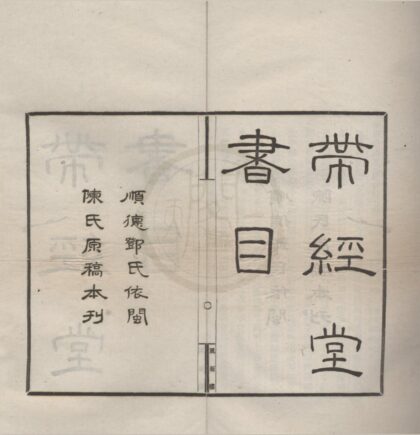 帶經堂
書目
順德鄧氏依閩
陳氏原稿本刊